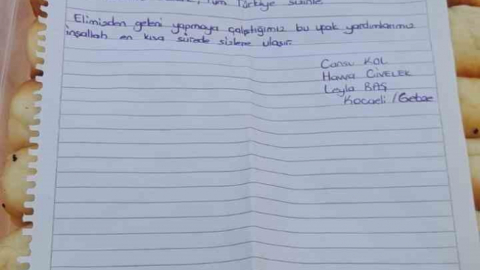 Tüm Türkiye sizinle.
Elimizden geleni yapmaya çalıştığımız bu ufak yardımlarımız
inşallah en kısa sürede sizlere ulaşır.
Cansu KOL
Havva CİVELEK
Leyla BAŞ
Kocaeli / Gebze